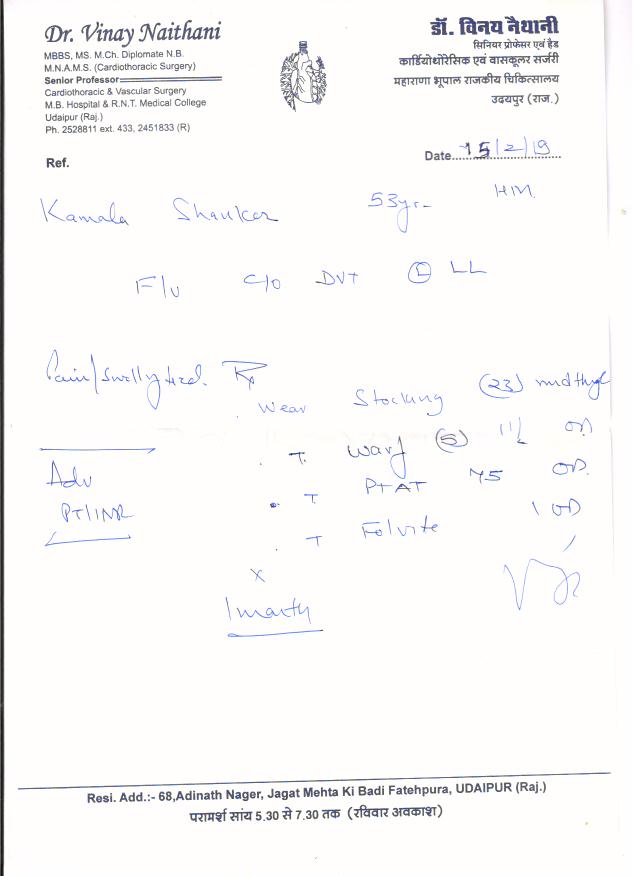 Dr. Vinay Naithani
MBBS, MS. M.Ch. Diplomate N.B.
M.N.A.M.S. (Cardiothoracic Surgery)
Senior Professor
Cardiothoracic & Vascular Surgery
M.B. Hospital & R.N.T. Medical College
Udaipur (Raj.)
Ph. 2528811 ext. 433, 2451833 (R)
डॉ. विनय नैथानी
सिनियर प्रोफेसर एवं हैड
कार्डियोथोरेसिक एवं वासकूलर सर्जरी
महाराणा भूपाल राजकीय चिकित्सालय
उदयपुर (राज.)
Ref.
Date 15/2/19
Kamala Shanker 53yr. HM.
F/U C/O DVT (L) LL
Pain/Swelling Rx
Wear Stocking (23) midthigh
T. Warf (5) OD
Adv
T. PTAT 75 OD.
PT/INR
T Folvite 1 OD
x
1 month
Resi. Add.:- 68,Adinath Nager, Jagat Mehta Ki Badi Fatehpura, UDAIPUR (Raj.)
परामर्श सांय 5.30 से 7.30 तक (रविवार अवकाश)